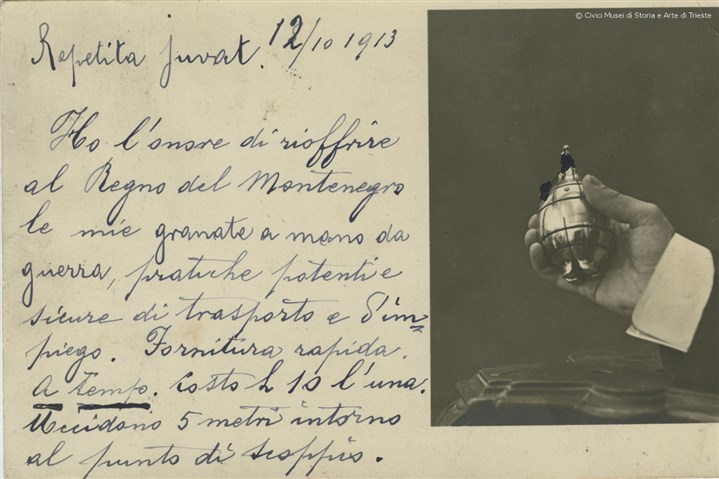 Repetita juvat. 12/10 1913
Ho l'onore di rioffrire
al Regno del Montenegro
le mie granate a mano da
guerra, pratiche potenti e
sicure di trasporto e d'im=
piego. Fornitura rapida.
A tempo. Costo L 10 l'una.
Uccidono 5 metri intorno
al punto di scoppio.
© Civici Musei di Storia e Arte di Trieste